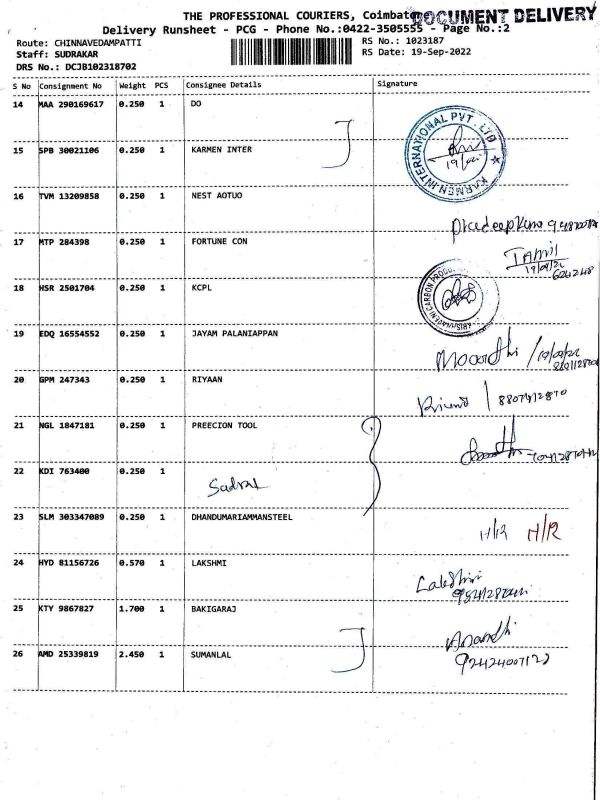 THE PROFESSIONAL COURIERS, Coimbato
DOCUMENT DELIVERY
Delivery Runsheet - PCG - Phone No.:0422-3505555 - Page No.:2
Route: CHINNAVEDAMPATTI
RS No.: 1023187
Staff: SUDRAKAR
RS Date: 19-Sep-2022
DRS No.: DCJB102318702
S No Consignment No Weight PCS Consignee Details Signature
14 MAA 290169617 0.250 1 DO
15 SPB 30021106 0.250 1 KARMEN INTER
KARMEN INTERNATIONAL PVT. LTD
16 TVM 13209858 0.250 1 NEST AOTUO
17 MTP 284398 0.250 1 FORTUNE CON
TAMIL
18 HSR 2501704 0.250 1 KCPL
19 EDQ 16554552 0.250 1 JAYAM PALANIAPPAN
20 GPM 247343 0.250 1 RIYAAN
21 NGL 1847181 0.250 1 PREECION TOOL
22 KDI 763400 0.250 1
23 SLM 303347089 0.250 1 DHANDUMARIAMMANSTEEL
H/R H/R
24 HYD 81156726 0.570 1 LAKSHMI
25 KTY 9867827 1.700 1 BAKIGARAJ
26 AMD 25339819 2.450 1 SUMANLAL